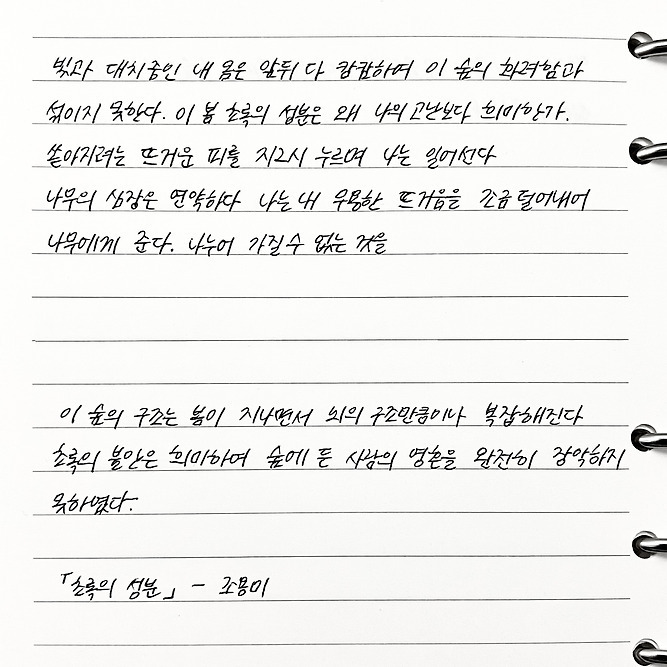 빛과 대치중인 내 몸은 앞뒤 다 캄캄하여 이 숲의 화려함과
섞이지 못한다. 이 봄 초록의 성분은 왜 나의 고난보다 희미한가.
쏟아지려는 뜨거운 피를 지그시 누르며 나는 일어선다
나무의 심장은 연약하다 나는 내 무용한 뜨거움을 조금 덜어내어
나무에게 준다. 나누어 가질 수 없는 것을
이 숲의 구조는 봄이 지나면서 뇌의 구조만큼이나 복잡해진다
초록의 불안은 희미하여 숲에 든 사람의 영혼을 완전히 장악하지
못하였다.
「초록의 성분」 - 조용미